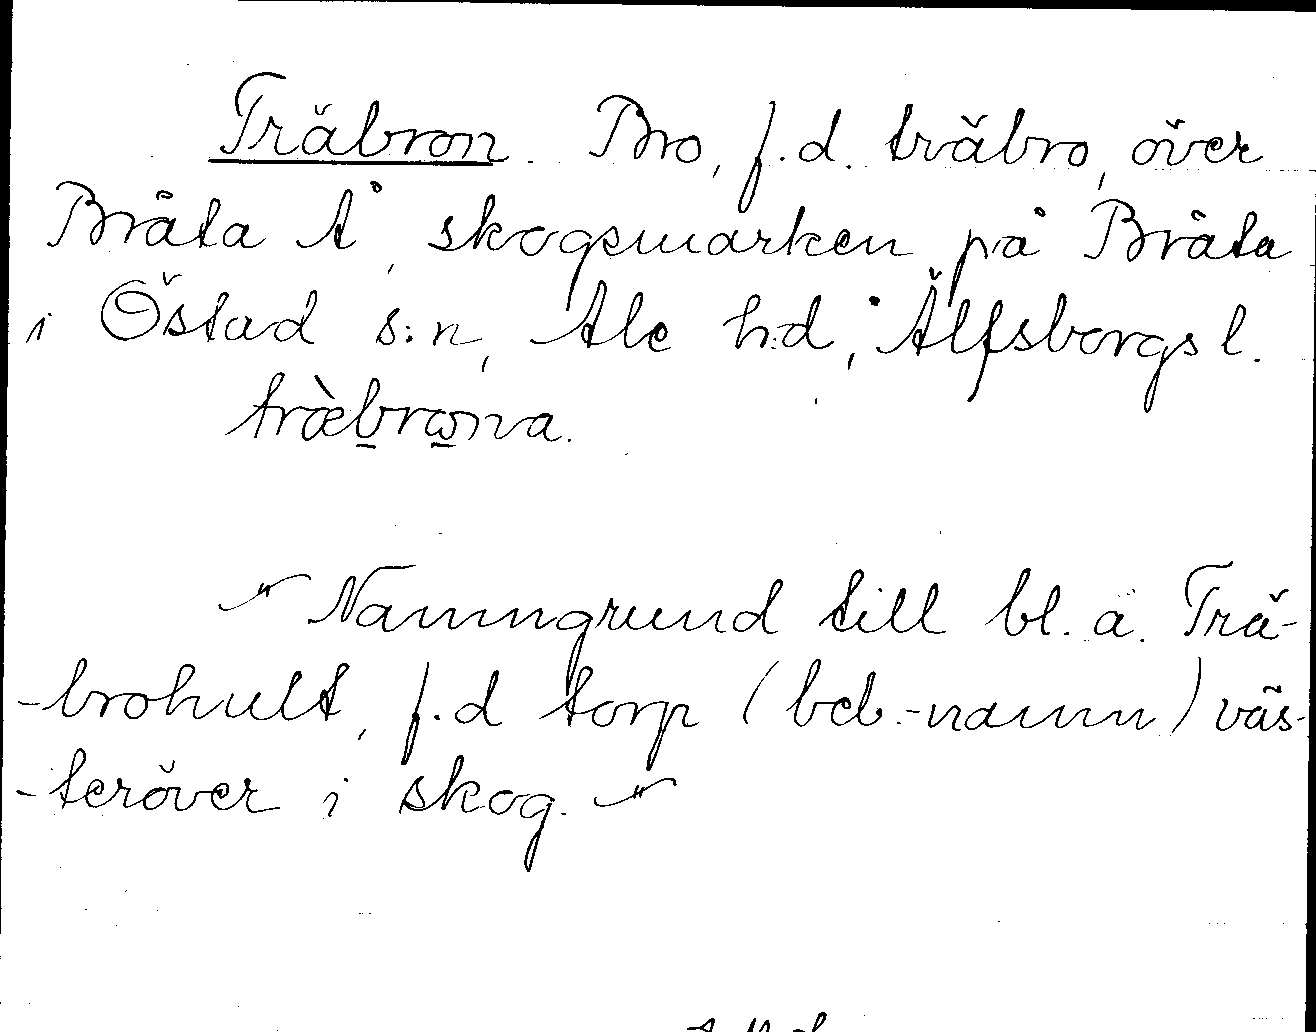 Träbron. Bro, f.d. träbro, över
Bråta Å, skogsmarken på Bråta
i Östad s:n, Ale h:d, Älfsborgs l.
träbrona.
"Namngrund till bl. a. Trä-
-brohult, f.d torp (beb.-namn) väs-
-teröver i skog."